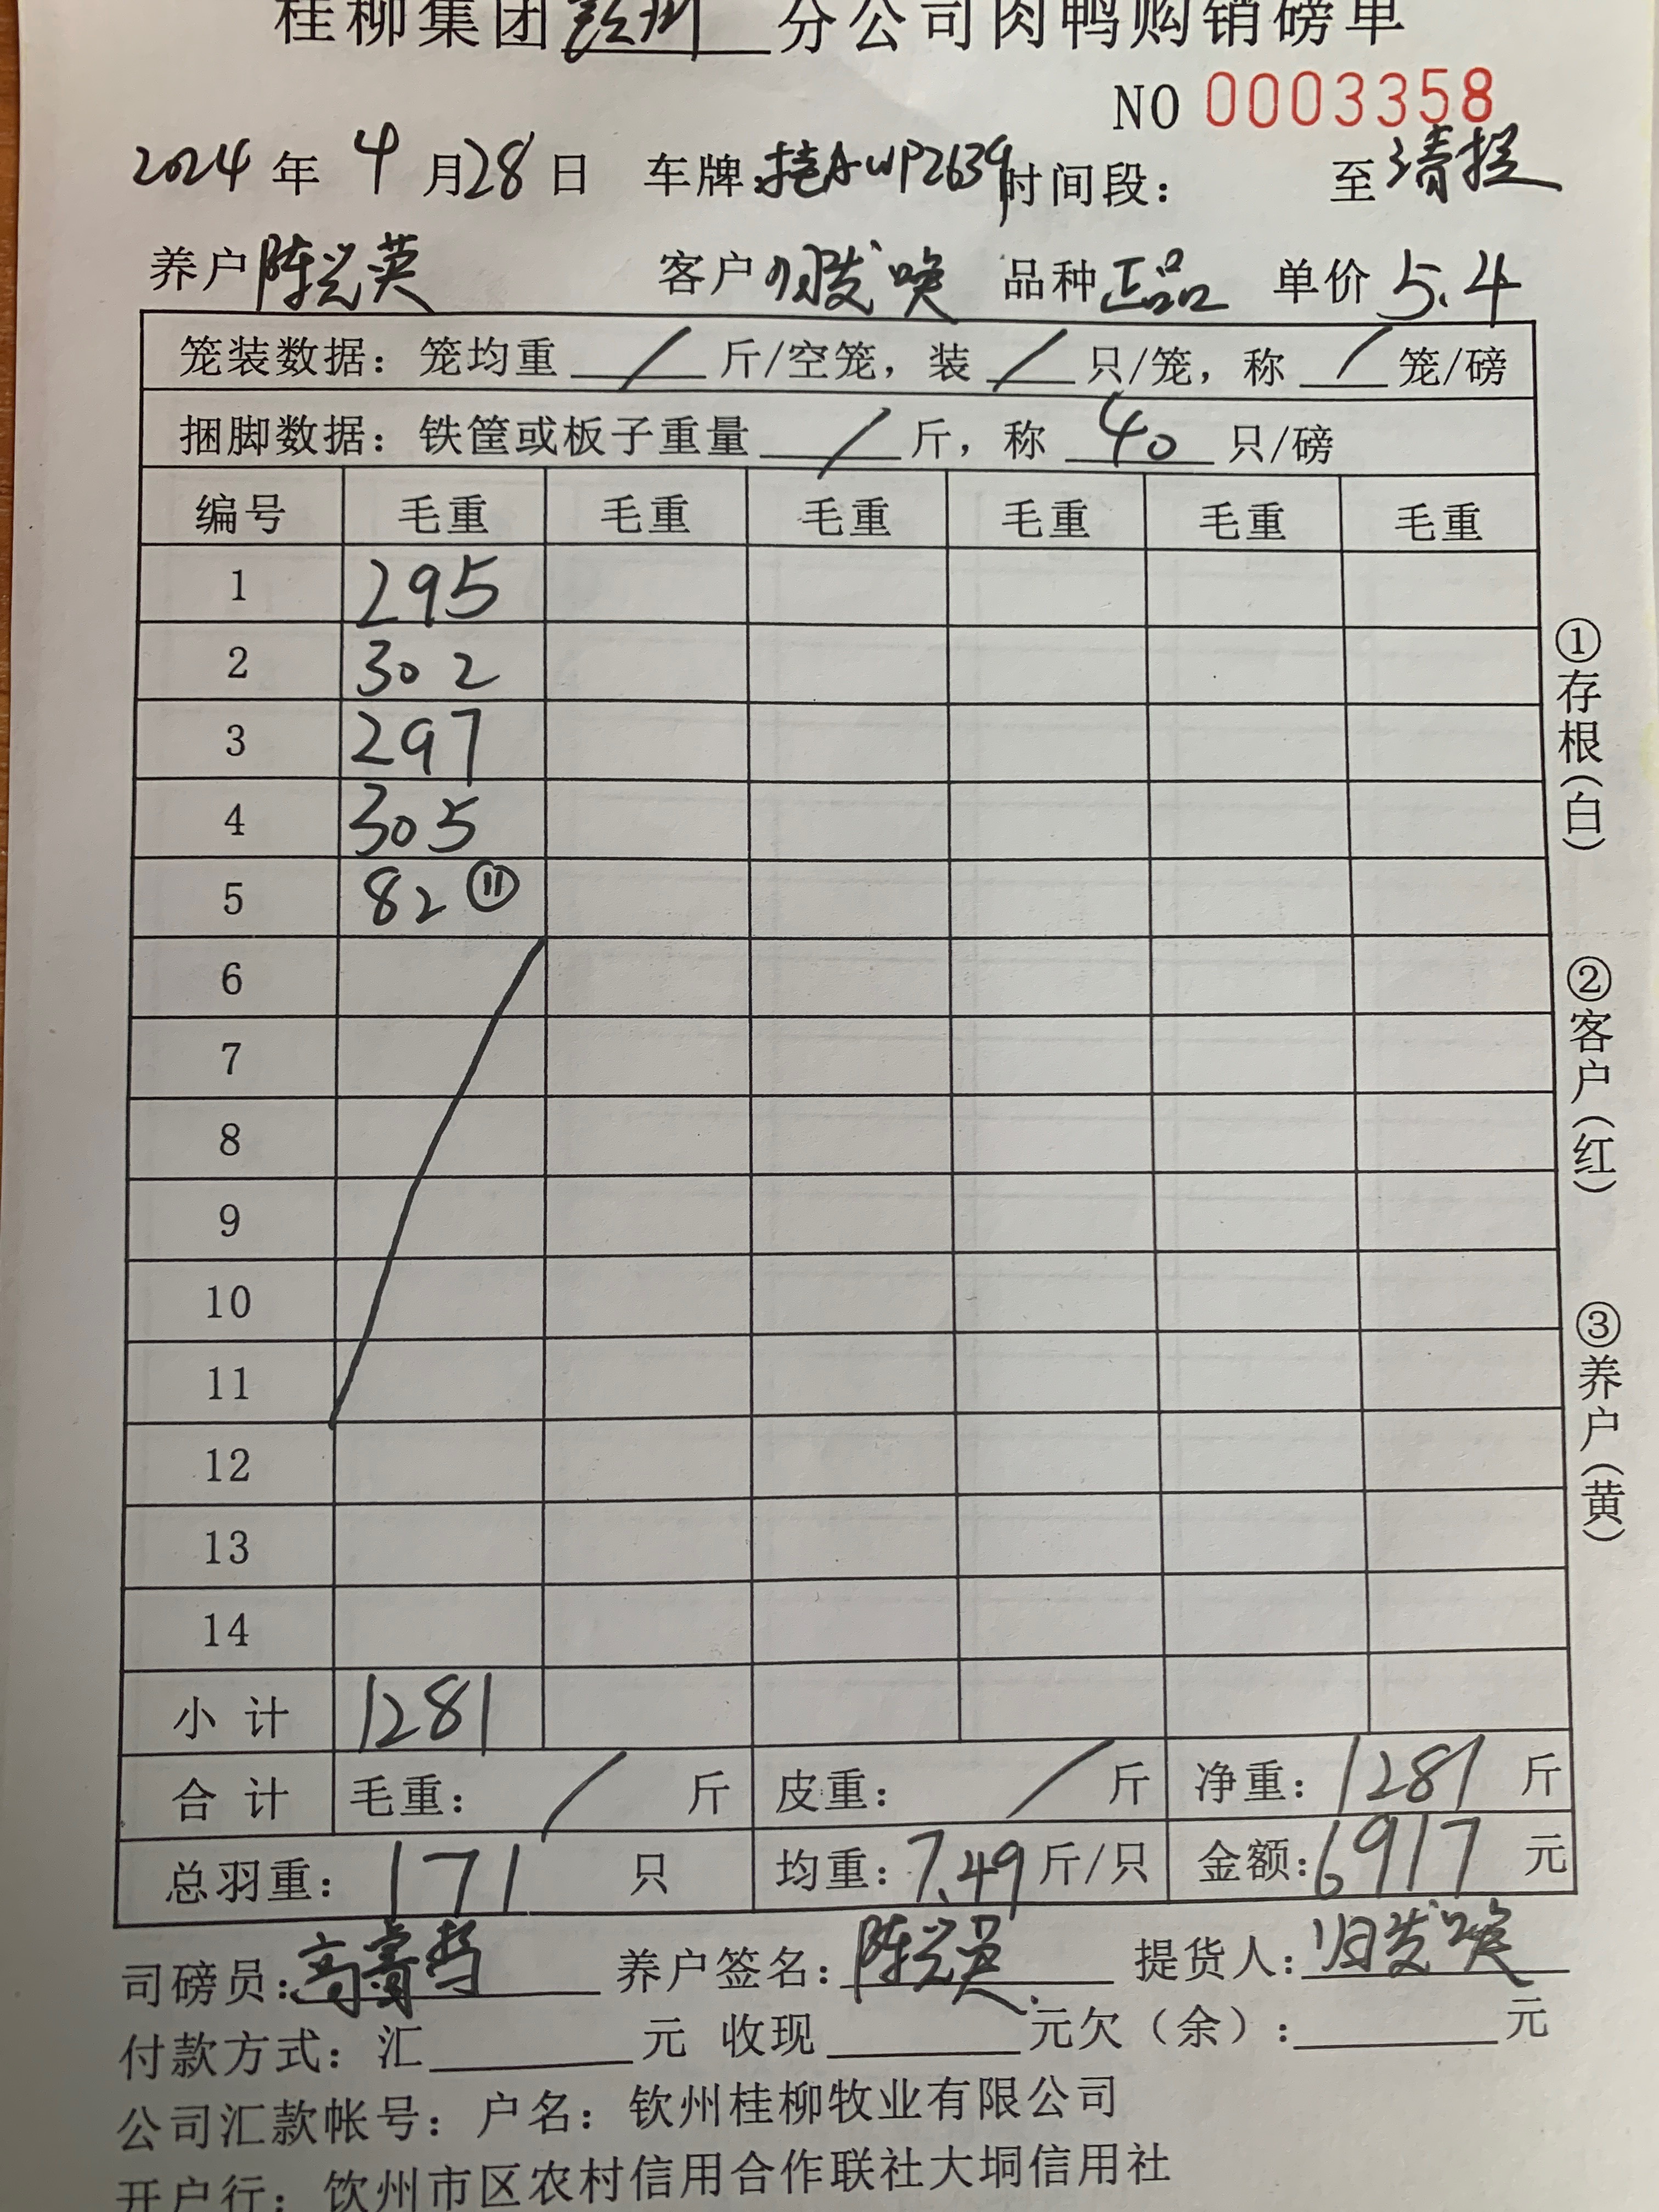 桂柳集团钦州分公司肉鸭购销磅单
NO 0003358
2024年4月28日 车牌:桂AWP2639时间段: 至清提
养户陈兴英 客户归发唤 品种正品 单价5.4
笼装数据:笼均重/斤/空笼,装/只/笼,称/笼/磅
捆脚数据:铁筐或板子重量/斤,称40只/磅
编号 毛重 毛重 毛重 毛重 毛重 毛重
1 295
2 302
3 297
4 305
5 82 ⑪
6
7
8
9
10
11
12
13
14
小计 1281
合计 毛重:/斤 皮重:/斤 净重:1281斤
总羽重:171只 均重:7.49斤/只 金额:6917元
司磅员: 养户签名:陈兴英 提货人:归发唤
付款方式:汇 元 收现 元欠(余): 元
公司汇款帐号:户名:钦州桂柳牧业有限公司
开户行:钦州市区农村信用合作联社大垌信用社
①存根(白)
②客户(红)
③养户(黄)